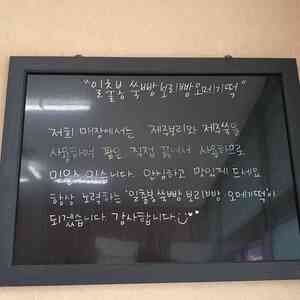 "일출봉 쑥빵 보리빵 오메기떡"
저희 매장에서는 제주보리와 제주쑥을
사용하여 팥은 직접 끓여서 사용하므로
믿을 수 있습니다. 안심하고 맛있게 드세요
항상 노력하는 '일출봉 쑥빵 보리빵 오메기떡'이
되겠습니다. 감사합니다.